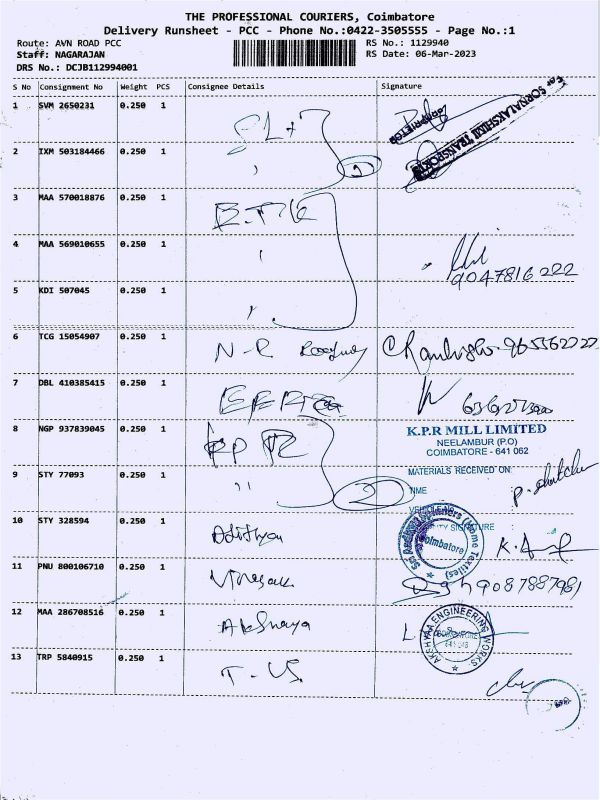 THE PROFESSIONAL COURIERS, Coimbatore
Delivery Runsheet - PCC - Phone No.:0422-3505555 - Page No.:1
Route: AVN ROAD PCC
RS No.: 1129940
Staff: NAGARAJAN
RS Date: 06-Mar-2023
DRS No.: DCJB112994001
S No Consignment No Weight PCS Consignee Details Signature
1 SVM 2650231 0.250 1
PROPRIETOR
For SORNALAKSHMI TRANSPORTS
2 IXM 503184466 0.250 1
3 MAA 570018876 0.250 1
4 MAA 569010655 0.250 1
9047816222
5 KDI 507045 0.250 1
6 TCG 15054907 0.250 1 N-R
7 DBL 410385415 0.250 1
8 NGP 937839045 0.250 1
K.P.R MILL LIMITED
NEELAMBUR (P.O)
COIMBATORE - 641 062
MATERIALS RECEIVED ON
9 STY 77093 0.250 1 2
TIME
VEHICLE No
SIGNATURE
10 STY 328594 0.250 1 Adithya
(Home Textiles)
Coimbatore
11 PNU 800106710 0.250 1 Vinayak 9087887981
12 MAA 286708516 0.250 1 Akshaya
AKSHYAA ENGINEERING WORKS
13 TRP 5840915 0.250 1 T-VS